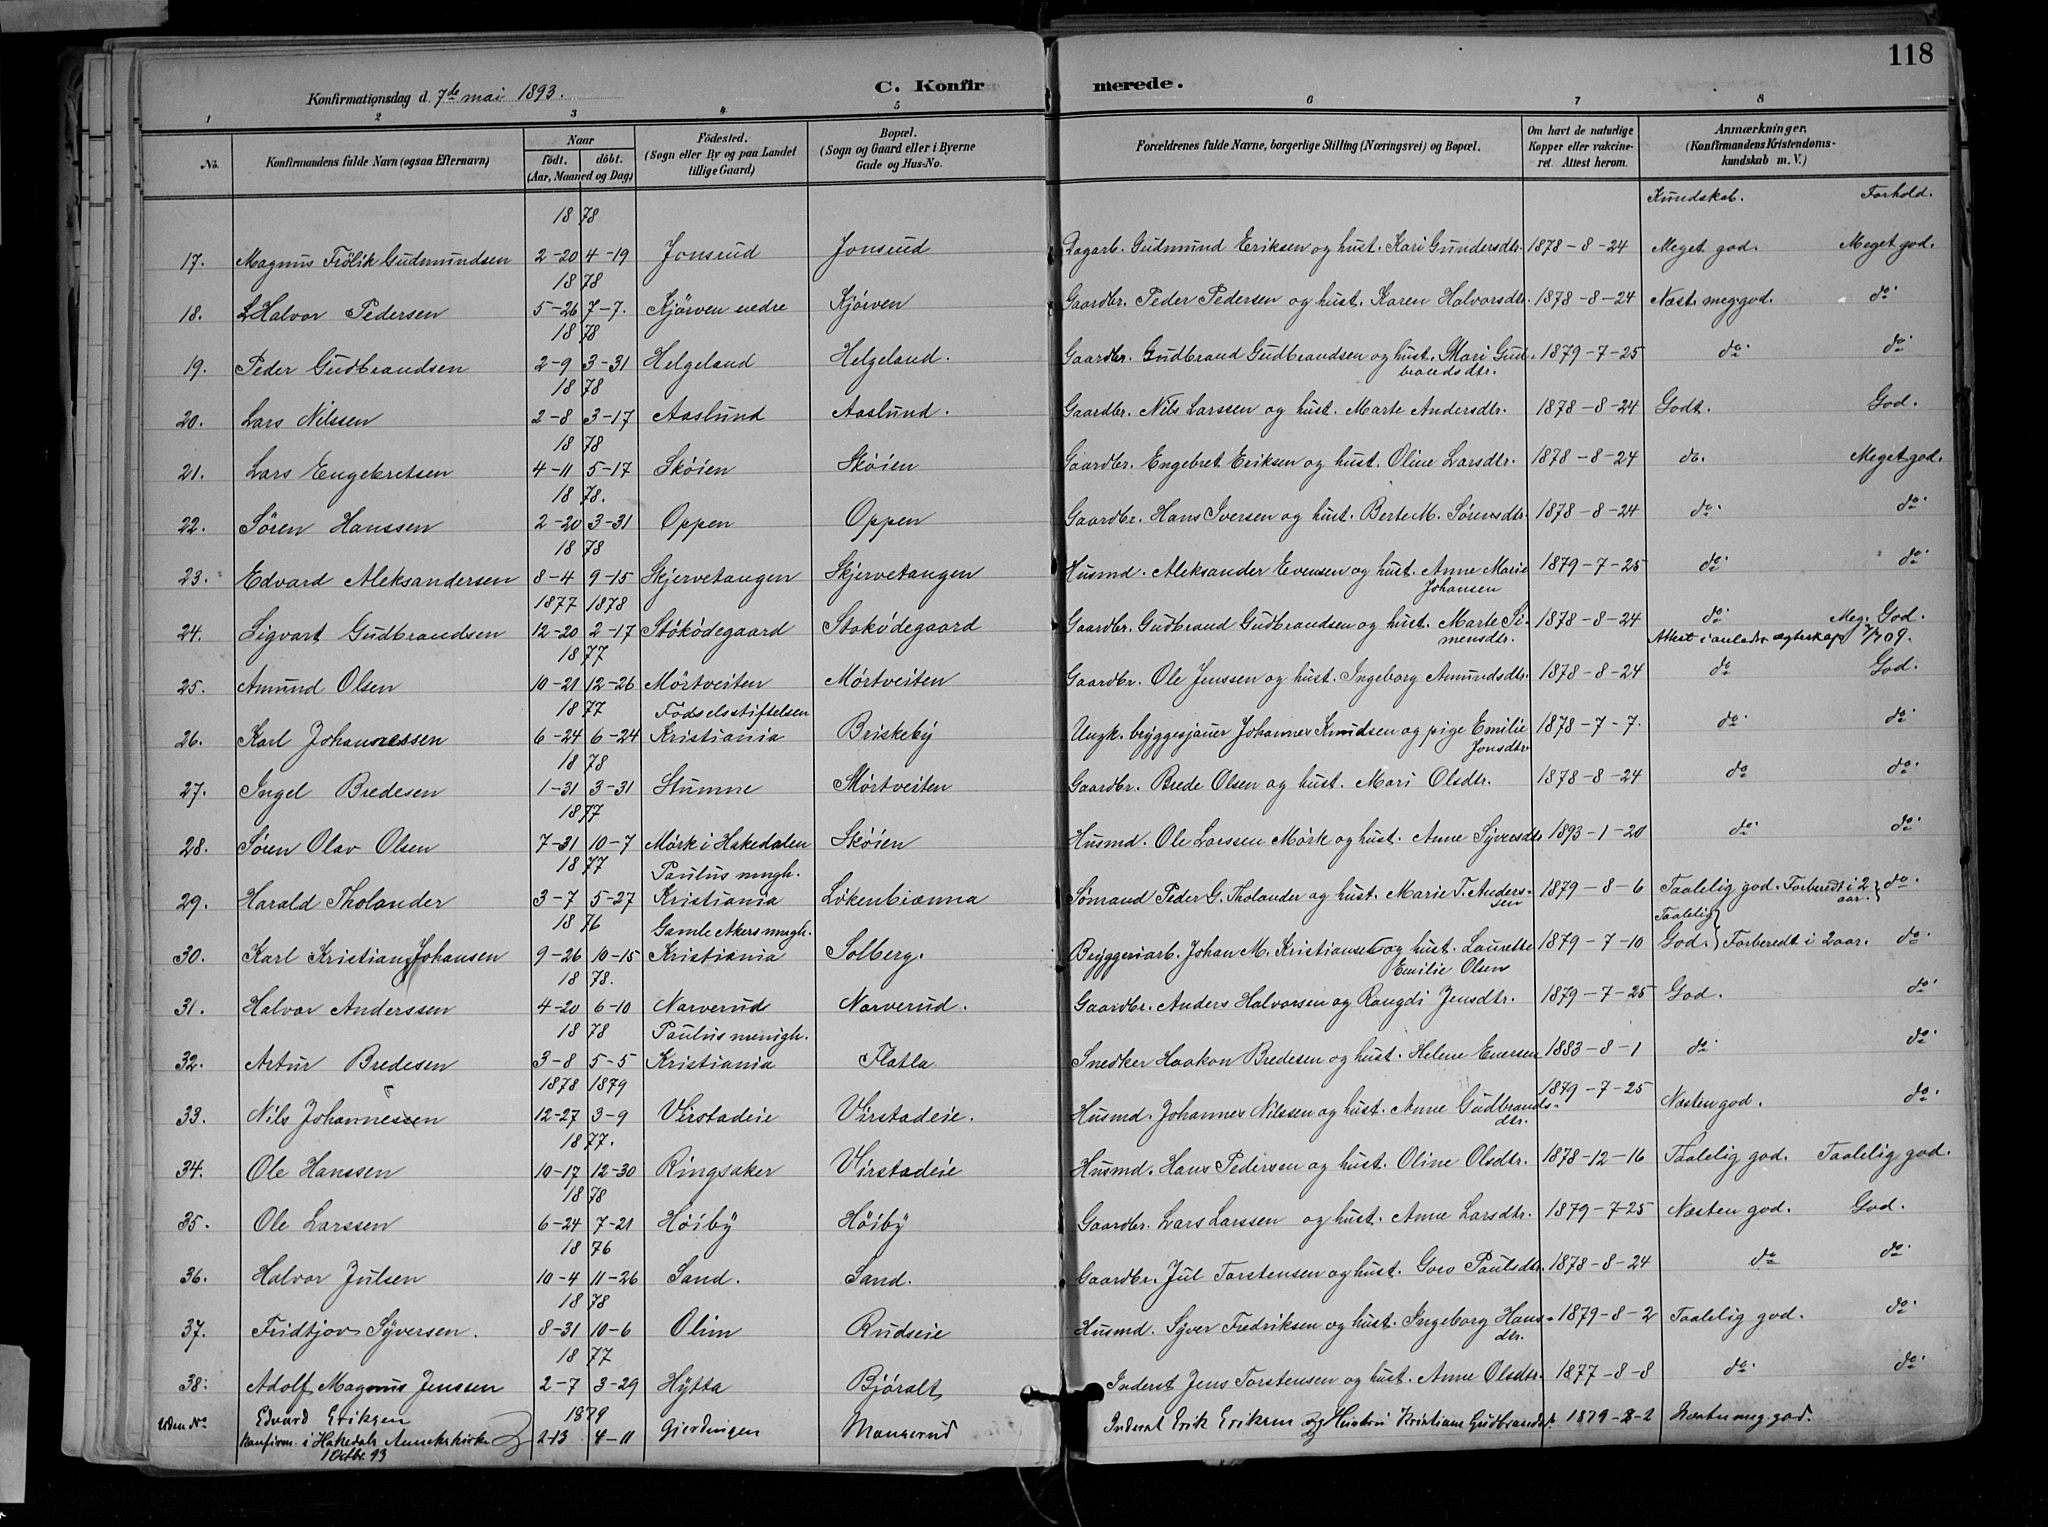 118
Konfirmationsdag d. 7de mai 1893.
C. Konfir merede.
1 2 3 4 5 6 7 8
No. Konfirmandens fulde Navn (ogsaa Efternavn) Naar født. døbt. (Aar, Maaned og Dag) Fødested. (Sogn eller By og paa Landet tillige Gaard) Bopæl. (Sogn og Gaard eller i Byerne Gade og Hus-No. Forældrenes fulde Navne, borgerlige Stilling (Næringsvei) og Bopæl. Om havt de naturlige Kopper eller vakcineret. Attest herom. Anmærkninger. (Konfirmandens Kristendomskundskab m. V.)
Kundskab. Forhold.
1878
17. Magnus Frölik Gudmundsen 2-20 4-19 Jonsrud Jonsrud Dagarb. Gudmund Eriksen og hust. Kari Gundersdtr. 1878-8-24 Meget god. Meget god.
1878
18. Halvor Pedersen 5-26 7-7. Kjörven nedre Kjörven Gaardbr. Peder Pedersen og hust. Karen Halvorsdtr. 1878-8-24 Næst. meg. god. do
1878
19. Peder Gudbrandsen 2-9 3-31 Helgeland Helgeland. Gaardbr. Gudbrand Gudbrandsen og hust. Mari Gud- 1879-7-25 do do
brandsdtr.
1878
20. Lars Nilssen 2-8 3-17 Aaslund Aaslund. Gaardbr. Nils Larssen og hust. Marte Andersdtr. 1878-8-24 Godt. God.
1878
21. Lars Engebretsen 4-11 5-17 Sköien Sköien Gaardbr. Engebret Eriksen og hust. Oline Larsdtr. 1878-8-24 do. Meget god.
1878.
22. Sören Hanssen 2-20 3-31 Oppen Oppen Gaardbr. Hans Iversen og hust. Berte M. Sörensdtr. 1878-8-24 do do
1878
23. Edvard Aleksandersen 8-4 9-15 Skjervetangen Skjervetangen Husmd. Aleksander Evensen og hust. Anne Marie 1879-7-25 do do
Johansen
1877 1878
24. Sigvart Gudbrandsen 12-20 2-17 Stöködegaard Stoködegaard Gaardbr. Gudbrand Gudbrandsen og hust. Marte Si- 1878-8-24 do Meg. God.
mensdtr. Attest i anledn. ægteskap 1/7 09.
1877
25. Amund Olsen 10-21 12-26 Mörtveiten Mörtveiten Gaardbr. Ole Jenssen og hust. Ingeborg Amundsdtr. 1878-8-24 do God.
1877 Födselsstiftelsen
26. Karl Johannessen 6-24 6-24 Kristiania Briskeby Ungk. bryggesjauer Johannes Knudsen og pige Emilie 1878-7-7. do do
Jonsdtr
1878
27. Ingel Bredesen 1-31 3-31 Stumne Mörtveiten Gaardbr. Brede Olsen og hust. Mari Olsdtr. 1878-8-24 do do
1877
28. Sören Olav Olsen 7-31 10-7 Mörk i Hakedalen Sköien Husmd. Ole Larssen Mörk og hust. Anne Syversdtr 1893-1-20 do do
1877 Paulus mngh.
29. Harald Tholander 3-7 5-27 Kristiania Lökenbrænna Sömand Peder G. Tholander og hust. Marie T. Anders- 1879-8-6 Taalelig god. Forberedt i 2 aar. do
sen
1876 Gamle Akers mngh. Taalelig
30. Karl Kristian Johansen 9-26 10-15 Kristiania Solberg. Bryggeriarb. Johan M. Kristiansen og hust. Laurette 1879-7-10 God. Forberedt i 2 aar. do
Emilie Olsen
1878.
31. Halvor Anderssen 4-20 6-10 Narverud Narverud. Gaardbr. Anders Halvorsen og Rangdi Jensdtr. 1879-7-25 God. do
1878 Paulus menigh.
32. Artur Bredesen 3-8 5-5 Kristiania Flatla Snedker Haakon Bredesen og hust. Helene Enersen 1883-8-1 do do
1878 1879
33. Nils Johannessen 12-27 3-9 Virstadeie Virstadeie. Husmd. Johannes Nilssen og hust. Anne Gudbrands- 1879-7-25 Næsten god. do
dtr.
1877.
34. Ole Hanssen 10-17 12-30 Ringsaker Virstadeie Husmd. Hans Pedersen og hust. Oline Olsdtr. 1878-12-16 Taalelig god. Taalelig god.
1878
35. Ole Larssen 6-24 7-21 Höiby Höiby Gaardbr. Lars Larssen og hust. Anne Larsdtr. 1879-7-25 Næsten god. God.
1876
36. Halvor Julsen 10-4 11-26 Sand. Sand. Gaardbr. Jul Torstensen og hust. Goro Paulsdtr. 1878-8-24 do do
1878
37. Fridtjov Syversen. 8-31 10-6 Olim Rudseie Husmd. Syver Fredriksen og hust. Ingeborg Hans- 1879-8-2 Taalelig god. do
dtr.
1877
38. Adolf Magnus Jenssen 2-7 3-29 Hytta Björalt Inderst Jens Torstensen og hust. Anne Olsdtr. 1877-8-8 do do
1879
Uden No Edvard Eriksen 2-13 4-11 Gjerdingen Mangerud Inderst Erik Eriksen og Hustru Kristiane Gudbrandsd. 1879-8-2 Næsten meg. god.
Konfirm. i Hakedals Annekskirke
1 Octbr. 93